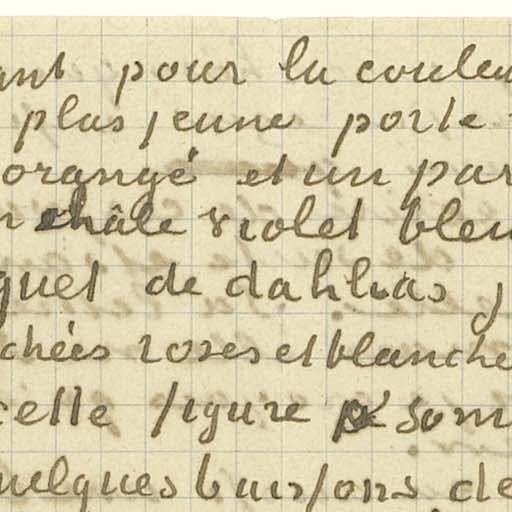 ant pour la couleu
plus jeune porte
orangé et un par
n châle violet bleu
quet de dahlias j
chées roses et blanche
celle figure som
quelques buissons de